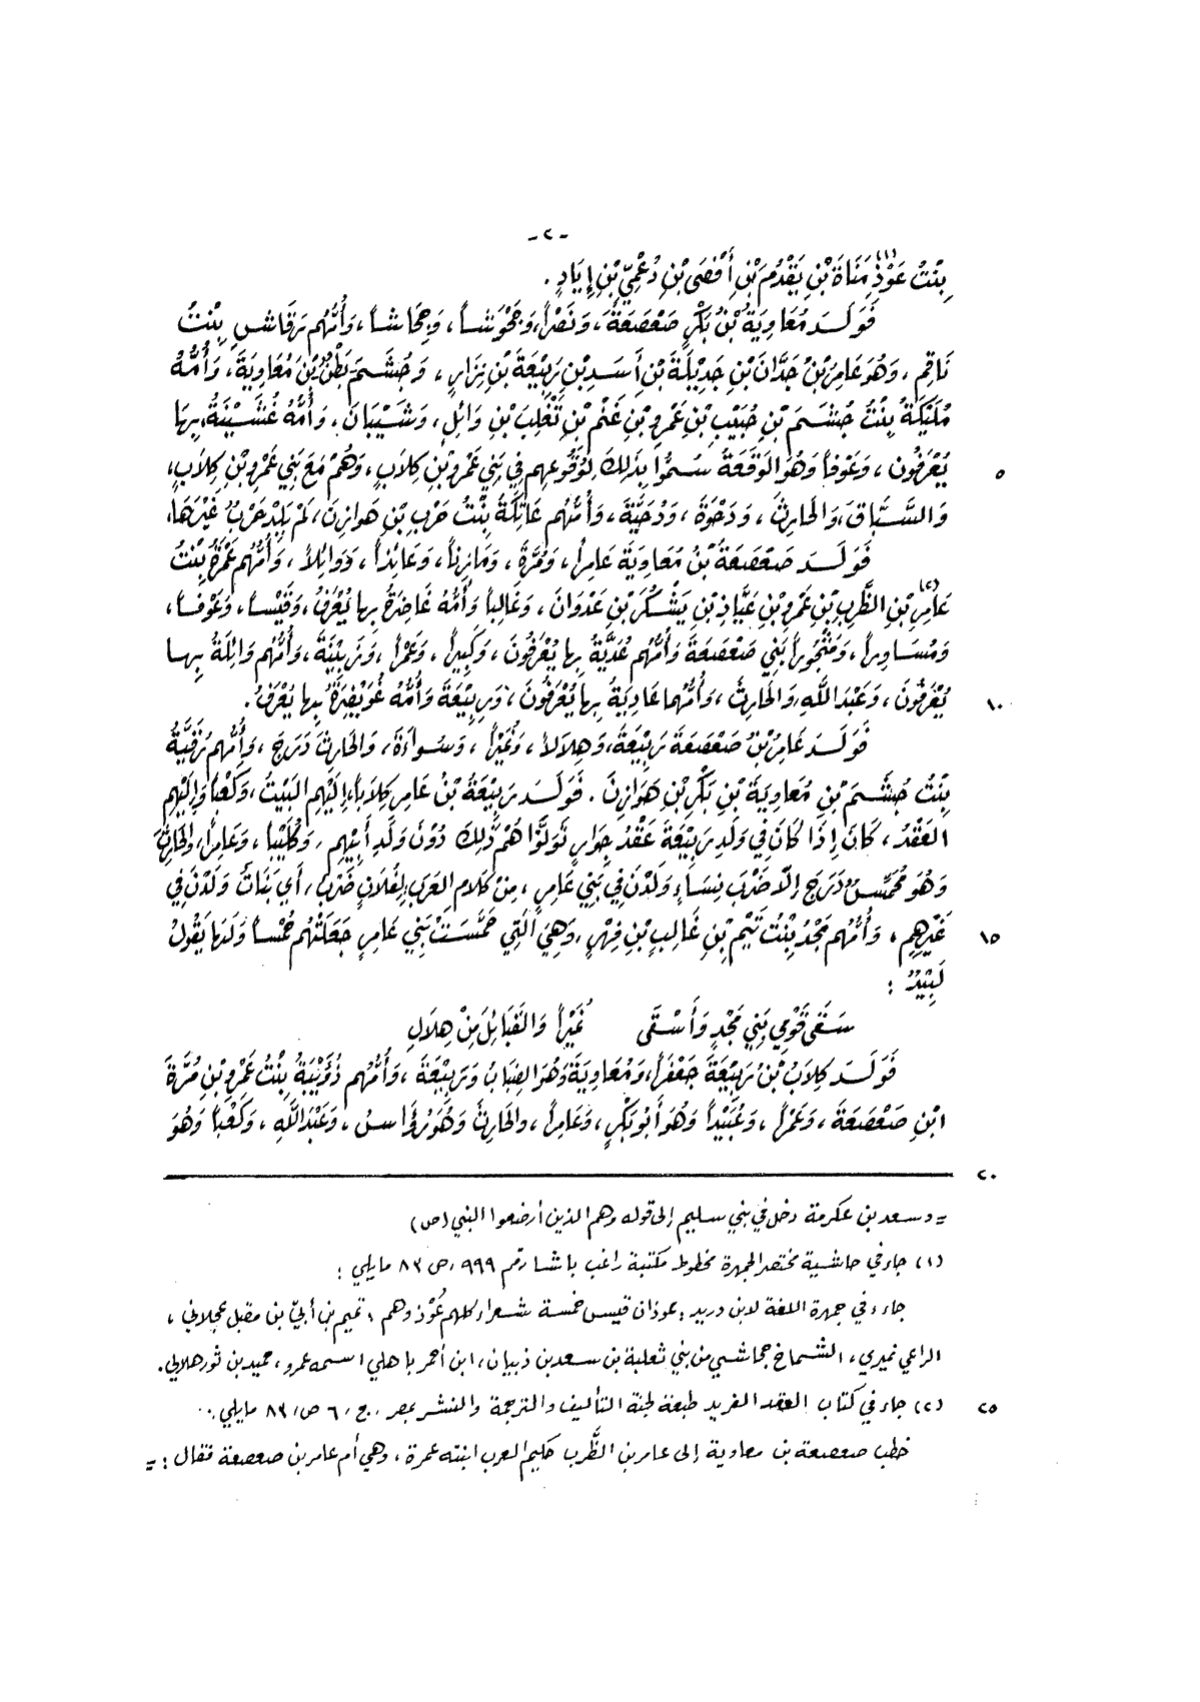 -٢-
بِنْتُ عَوْذِ(١) مَنَاةَ بْنِ يَقْدُمَ بْنِ أَفْصَى بْنِ دُعْمِيِّ بْنِ إِيَادٍ .
فَوَلَدَ مُعَاوِيَةُ بْنُ بَكْرٍ صَعْصَعَةَ، وَنَصْراً، وَجَحْوَشاً، وَجِحَاشاً، وَأُمُّهُم رَقَاشِ بِنْتُ
نَاقِمٍ، وَهُوَ عَامِرُ بْنُ جَدَّانَ بْنِ جَدِيْلَةَ بْنِ أَسَدِ بْنِ رَبِيْعَةَ بْنِ نِزَارٍ، وَجُشَمَ بَطْنُ بْنَ مُعَاوِيَةَ، وَأُمُّهُ
مُلَيْكَةُ بِنْتُ جُشَمَ بْنِ حُبَيْبِ بْنِ عَمْرِو بْنِ غَنْمِ بْنِ تَغْلِبَ بْنِ وَائِلٍ، وَشَيْبَانَ، وَأُمُّهُ عُشَيْنَةُ، بِهَا
يُعْرَفُونَ، وَعَوْفاً وَهُوَ الوَقَعَةُ سُمُّوا بِذَلِكَ لِوُقُوعِهِم فِي بَنِي عَمْرِو بْنِ كِلاَبٍ، وَهُمْ مَعَ بَنِي عَمْرِو بْنِ كِلاَبٍ، ٥
وَالسَّبَّاقَ، وَالحَارِثَ، وَدَحْوَةَ، وَدُحَيَّةَ، وَأُمُّهُم عَاتِكَةُ بِنْتُ حَرْبِ بْنِ هَوازِنَ، لَمْ يَلِدْ حَرْبٌ غَيْرَهَا،
فَوَلَدَ صَعْصَعَةُ بْنُ مُعَاوِيَةَ عَامِراً، وَمُرَّةَ، وَمَازِناً، وَعَائِذاً، وَوَائِلاً، وَأُمُّهُم عَمْرَةُ بِنْتُ
عَامِرِ(٢) بْنِ الظَّرِبِ بْنِ عَمْرِو بْنِ عَيَّاذِ بْنِ يَشْكُرَ بْنِ عَدْوَانَ، وَغَالِباً وَأُمُّهُ غَاضِرَةُ بِهَا يُعْرَفُ، وَقَيْساً، وَعَوْفاً،
وَمُسَاوِراً، وَمَثْجُوراً بَنِي صَعْصَعَةَ وَأُمُّهُم عُدَيَّةُ بِهَا يُعْرَفُونَ، وَكَبِيراً، وَعَمْراً، وَزَبِيْنَةَ، وَأُمُّهُم وَائِلَةُ بِهَا
يُعْرَفُونَ، وَعَبْدَ اللَّهِ، وَالحَارِثَ، وَأُمُّهُمَا عَادِيَةُ بِهَا يُعْرَفُونَ، وَرَبِيْعَةَ وَأُمُّهُ غُوَيْضِرَةُ بِهَا يَعْرَفُ. ١٠
فَوَلَدَ عَامِرُ بْنُ صَعْصَعَةَ رَبِيْعَةَ، وَهِلاَلاً، وَنُمَيْراً، وَسُوَاءَةَ، وَالحَارِثَ دَرَجَ، وَأُمُّهُم رُقَيَّةُ
بِنْتُ جُشَمَ بْنِ مُعَاوِيَةَ بْنِ بَكْرِ بْنِ هَوَازِنَ. فَوَلَدَ رَبِيْعَةُ بْنُ عَامِرٍ كِلاَباً، إِلَيْهِمِ البَيْتُ، وَكَعْباً وَإِلَيْهِمِ
العَقْدُ، كَانَ إِذَا كَانَ فِي وَلَدِ رَبِيْعَةَ عَقْدُ جِوَارٍ تَوَلَّوا هُمْ ذَلِكَ دُوْنَ وَلَدِ أَبِيْهِم، وَكُلَيْباً، وَعَامِراً، وَالحَارِثَ
وَهُوَ مُخَمَّسٌ دَرَجَ إِلاَّ ضَرْبَ نِسَاءٍ وَلَدْنَ فِي بَنِي عَامِرٍ، مِنْ كَلاَمِ العَرَبِ لِفُلاَنٍ ضَرْبٌ، أَي بَنَاتٌ وَلَدْنَ فِي
غَيْرِهِمِ، وَأُمُّهُم مَجْدُ بِنْتُ تَيْمِ بْنِ غَالِبِ بْنِ فِهْرٍ، وَهِيَ الَّتِي حَمَّسَتْ بَنِي عَامِرٍ جَعَلَتْهُم حُمْساً وَلَهَا يَقُولُ ١٥
لَبِيْدٌ :
سَقَى قَوْمِي بَنِي مَجْدٍ وَأَسْقَى     نُمَيْراً وَالقَبَائِلَ مِنْ هِلاَلِ
فَوَلَدَ كِلاَبُ بْنُ رَبِيْعَةَ جَعْفَراً، وَمُعَاوِيَةَ وَهُوَ الضِبَابُ وَرَبِيْعَةَ، وَأُمُّهُم ذُؤَيْبَةُ بِنْتُ عَمْرِو بْنِ مُرَّةَ
ابْنِ صَعْصَعَةَ، وَعَمْراً، وَعُبَيْداً وَهُوَ أَبُو بَكْرٍ، وَعَامِراً، وَالحَارِثَ وَهُوَ رُؤَاسُ، وَعَبْدَ اللَّهِ، وَكَعْباً وَهُوَ
٢٠
= وسعد بن عكرمة دخل في بني سليم إلى قوله وهم الذين أرضعوا النبي (ص)
(١) جاء في حاشية مختصر الجمهرة مخطوط مكتبة راغب باشا رقم ٩٩٩، ص ٨٣ مايلي :
جاء في جمهرة اللغة لابن دريد : عوذان قيس خمسة شعراء كلهم عُوْذ وهم : تميم بن أبيّ بن مقبل عجلاني،
الراعي نميري، الشماخ جحاشي من بني ثعلبة بن سعد بن ذبيان، ابن أحمر باهلي اسمه عمرو، حميد بن ثور هلالي.
(٢) جاء في كتاب العقد الفريد طبعة لجنة التأليف والترجمة والنشر بمصر، ج، ٦ ص، ٨٣ مايلي : ٢٥
خطب صعصعة بن معاوية إلى عامر بن الظَّرب حكيم العرب ابنته عمرة، وهي أم عامر بن صعصعة فقال : =